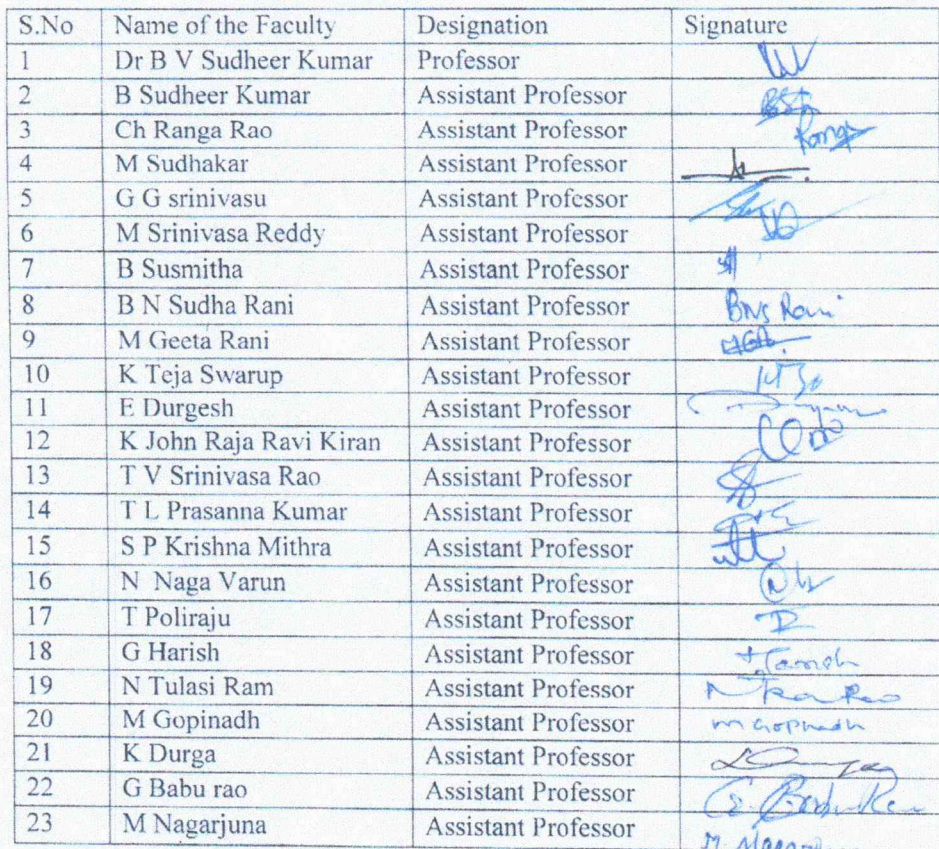 S.No Name of the Faculty Designation Signature
1 Dr B V Sudheer Kumar Professor
2 B Sudheer Kumar Assistant Professor
3 Ch Ranga Rao Assistant Professor Ranga
4 M Sudhakar Assistant Professor
5 G G srinivasu Assistant Professor
6 M Srinivasa Reddy Assistant Professor
7 B Susmitha Assistant Professor
8 B N Sudha Rani Assistant Professor BNS Rani
9 M Geeta Rani Assistant Professor
10 K Teja Swarup Assistant Professor
11 E Durgesh Assistant Professor
12 K John Raja Ravi Kiran Assistant Professor
13 T V Srinivasa Rao Assistant Professor
14 T L Prasanna Kumar Assistant Professor
15 S P Krishna Mithra Assistant Professor
16 N Naga Varun Assistant Professor
17 T Poliraju Assistant Professor
18 G Harish Assistant Professor
19 N Tulasi Ram Assistant Professor
20 M Gopinadh Assistant Professor m Gopinadh
21 K Durga Assistant Professor
22 G Babu rao Assistant Professor
23 M Nagarjuna Assistant Professor